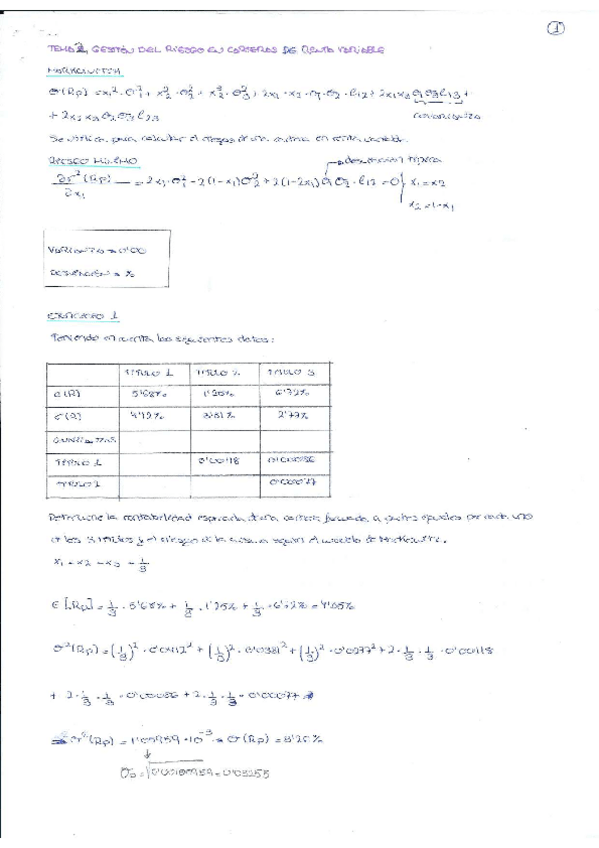 1
TEMA 2, GESTIÓN DEL RIESGO EN CARTERAS DE RENTA VARIABLE
MARKOWITZ
σ²(Rp) = x₁²·σ₁² + x₂²·σ₂² + x₃²·σ₃² + 2x₁·x₂·σ₁·σ₂·ρ₁₂ + 2x₁x₃σ₁σ₃ρ₁₃ +
+ 2x₂x₃σ₂σ₃ρ₂₃ COVARIANZA
Se utiliza para calcular el riesgo de una cartera en renta variable.
RIESGO MÍNIMO → desviación típica
∂σ²(Rp)/∂x₁ = 2x₁·σ₁² - 2(1-x₁)σ₂² + 2(1-2x₁)σ₁σ₂·ρ₁₂ = 0 } x₁ = x₂
x₂ = 1-x₁
VARIANZA = 0'00
DESVIACIÓN = %
EJERCICIO 1
Teniendo en cuenta los siguientes datos:
TÍTULO 1 TÍTULO 2 TÍTULO 3
E(R) 5'68% 1'25% 6'72%
σ(R) 4'12% 3'81% 2'77%
COVARIANZAS
TÍTULO 1 0'00118 0'00086
TÍTULO 2 0'00077
Determine la rentabilidad esperada de una cartera formada a partes iguales por cada uno
de los 3 títulos y el riesgo de la cartera según el modelo de Markowitz.
x₁ = x₂ = x₃ = 1/3
E[Rp] = 1/3 · 5'68% + 1/3 · 1'25% + 1/3 · 6'72% = 4'55%
σ²(Rp) = (1/3)² · 0'0412² + (1/3)² · 0'0381² + (1/3)² · 0'0277² + 2 · 1/3 · 1/3 · 0'00118
+ 2 · 1/3 · 1/3 · 0'00086 + 2 · 1/3 · 1/3 · 0'00077
σ²(Rp) = 1'05959·10⁻³ → σ(Rp) = 3'25%
σp = √0'00105959 = 0'03255